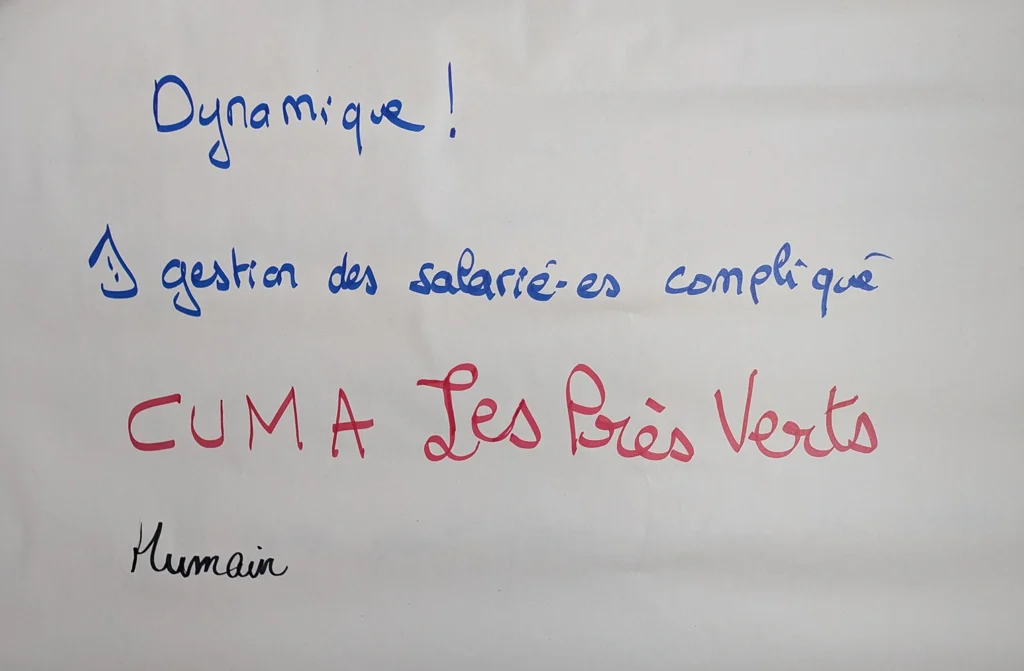 Dynamique !
⚠ gestion des salarié-es compliqué
CUMA Les Près Verts
Humain